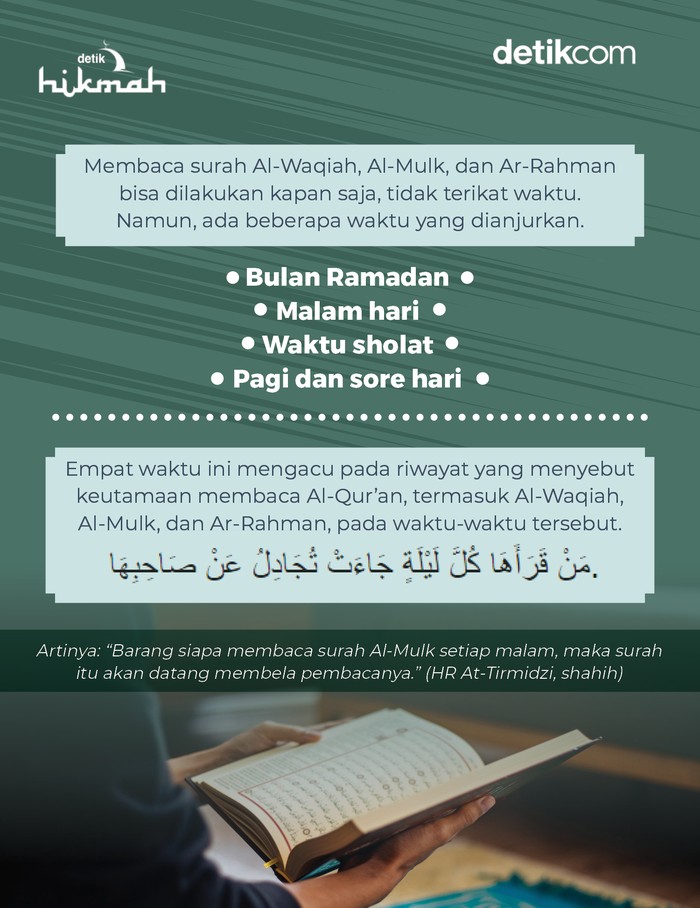 detik
hikmah
detikcom
Membaca surah Al-Waqiah, Al-Mulk, dan Ar-Rahman
bisa dilakukan kapan saja, tidak terikat waktu.
Namun, ada beberapa waktu yang dianjurkan.
• Bulan Ramadan •
• Malam hari •
• Waktu sholat •
• Pagi dan sore hari •
Empat waktu ini mengacu pada riwayat yang menyebut
keutamaan membaca Al-Qur’an, termasuk Al-Waqiah,
Al-Mulk, dan Ar-Rahman, pada waktu-waktu tersebut.
مَنْ قَرَأَهَا كُلَّ لَيْلَةٍ جَاءَتْ تُجَادِلُ عَنْ صَاحِبِهَا.
Artinya: “Barang siapa membaca surah Al-Mulk setiap malam, maka surah
itu akan datang membela pembacanya.” (HR At-Tirmidzi, shahih)